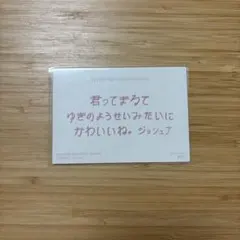 君ってまるで
ゆきのようせいみたいに
かわいいね。ジョシュア